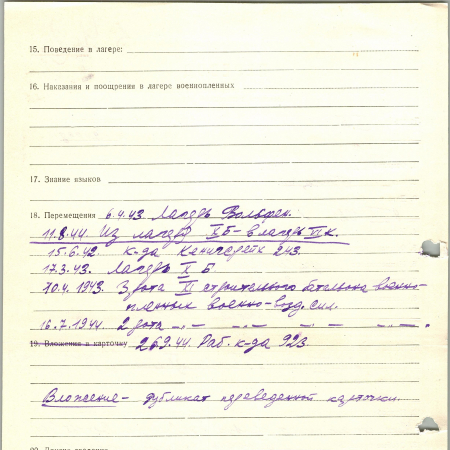 15. Поведение в лагере:
16. Наказания и поощрения в лагере военнопленных
17. Знание языков
18. Перемещения 6.4.43. Лагерь Вольфен.
11.8.44. Из лагеря XБ - в лагерь VI К.
15.6.42. к-да 243.
17.3.43. Лагерь X Б
10.4.1943. 3 рота XI строительного батальона военно-
пленных военно-возд. сил.
16.7.1944. 2 рота -„- -„- -„- -„-.
19. Вложения в карточку 26.9.44. Раб. к-да 923.
Вложение - дубликат переведенной карточки.